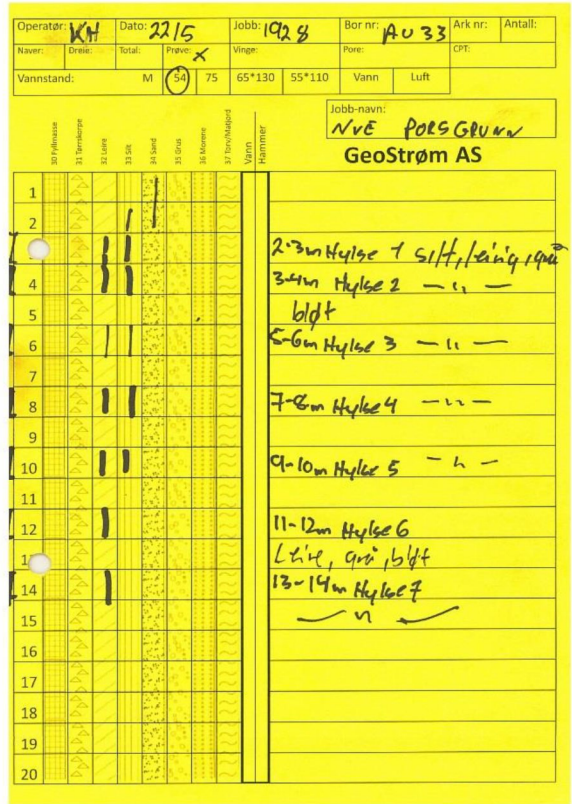 Operatør: KH Dato: 22/5 Jobb: 1928 Bor nr: AU 33 Ark nr: Antall:
Naver: Dreie: Total: Prøve: X Vinge: Pore: CPT:
Vannstand: M 54 75 65*130 55*110 Vann Luft
Jobb-navn:
NVE PORSGRUNN
GeoStrøm AS
30 Fyllmasse 31 Tørrskorpe 32 Leire 33 Silt 34 Sand 35 Grus 36 Morene 37 Torv/Matjord Vann Hammer
1
2
2-3m Hylse 1 silt, leirig, grå
4 3-4m Hylse 2 — " —
5 bløt
6 5-6m Hylse 3 — " —
7
8 7-8m Hylse 4 — " —
9
10 9-10m Hylse 5 — " —
11
12 11-12m Hylse 6
13 Leire, grå, bløt
14 13-14m Hylse 7
15 — " —
16
17
18
19
20